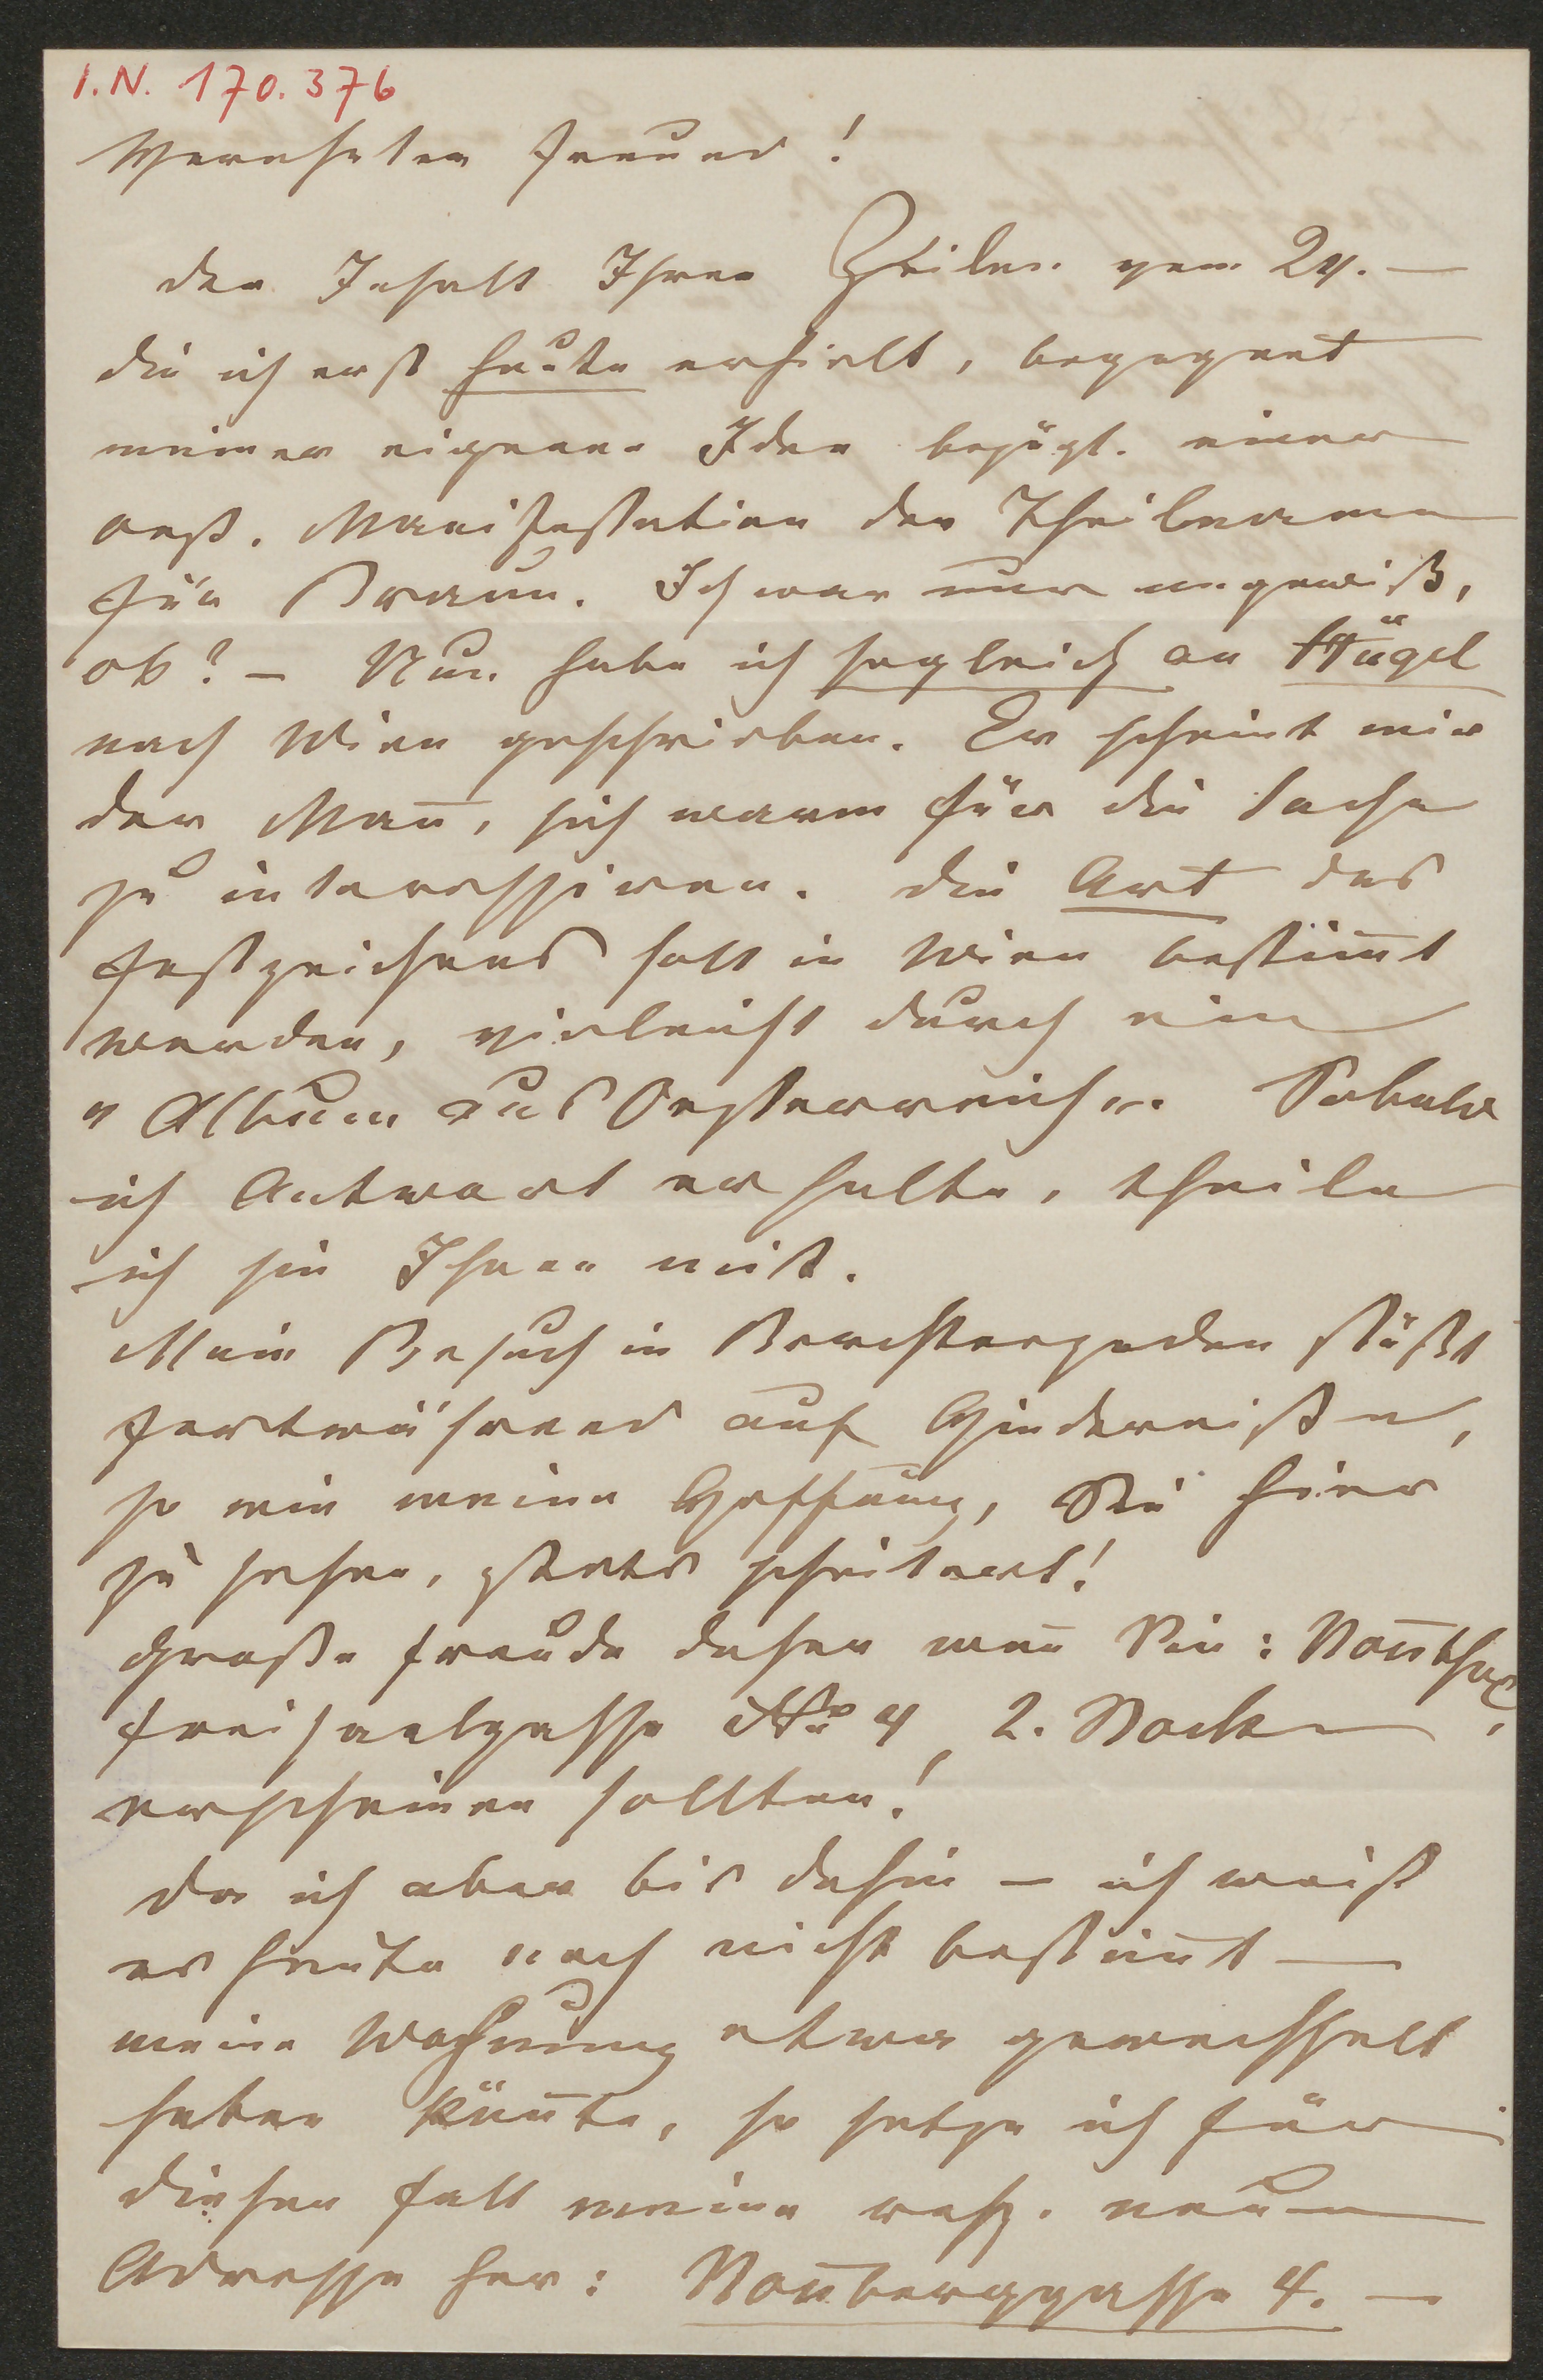 I.N. 170.376
Verehrter Freund!
der Inhalt Ihrer Zeilen vom 24. —
die ich erst heute erhielt, begegnet
meiner eigenen Idee bezügl. einer
oest. Manifestation der Theilname
für Braun. Ich war nur ungewiß,
ob? – Nun habe ich sogleich an Hügel
nach Wien geschrieben. Er scheint mir
der Mañ, sich warm für die Sache
zu interessiren. Die Art des
Festzeichens soll in Wien bestim̄t
werden, vielleicht durch ein
"Album aus Oesterreich". Sobald
ich Antwort erhalte, theile
ich sie Ihnen mit.
Mein Besuch in Berchtesgaden stößt
fortwährend auf Hinderniße,
so wie meine Hoffnung, Sie hier
zu sehen, stets scheitert!
Große Freude daher weñ Sie: Noñthal,
Freisaalgasse No 4, 2. Stock
erscheinen sollten!
Da ich aber bis dahin – ich weiß
es heute noch nicht bestim̄t —
meine Wohnung etwa gewechselt
haben köñte, so setze ich für
diesen Fall meine resp. neue
Adresse her: Noñberggasse 4. —